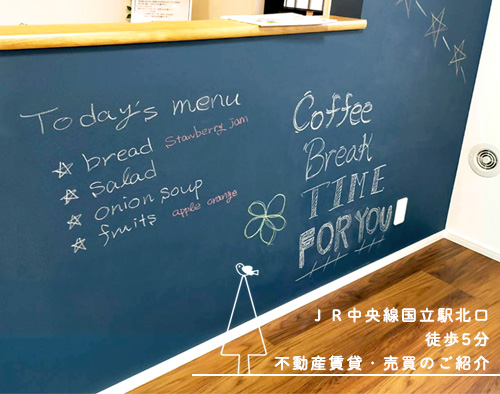 Today's menu
bread Stawberry Jam
salad
onion soup
fruits apple orange
Coffee
Break
TIME
FOR YOU
ＪＲ中央線国立駅北口
徒歩5分
不動産賃貸・売買のご紹介